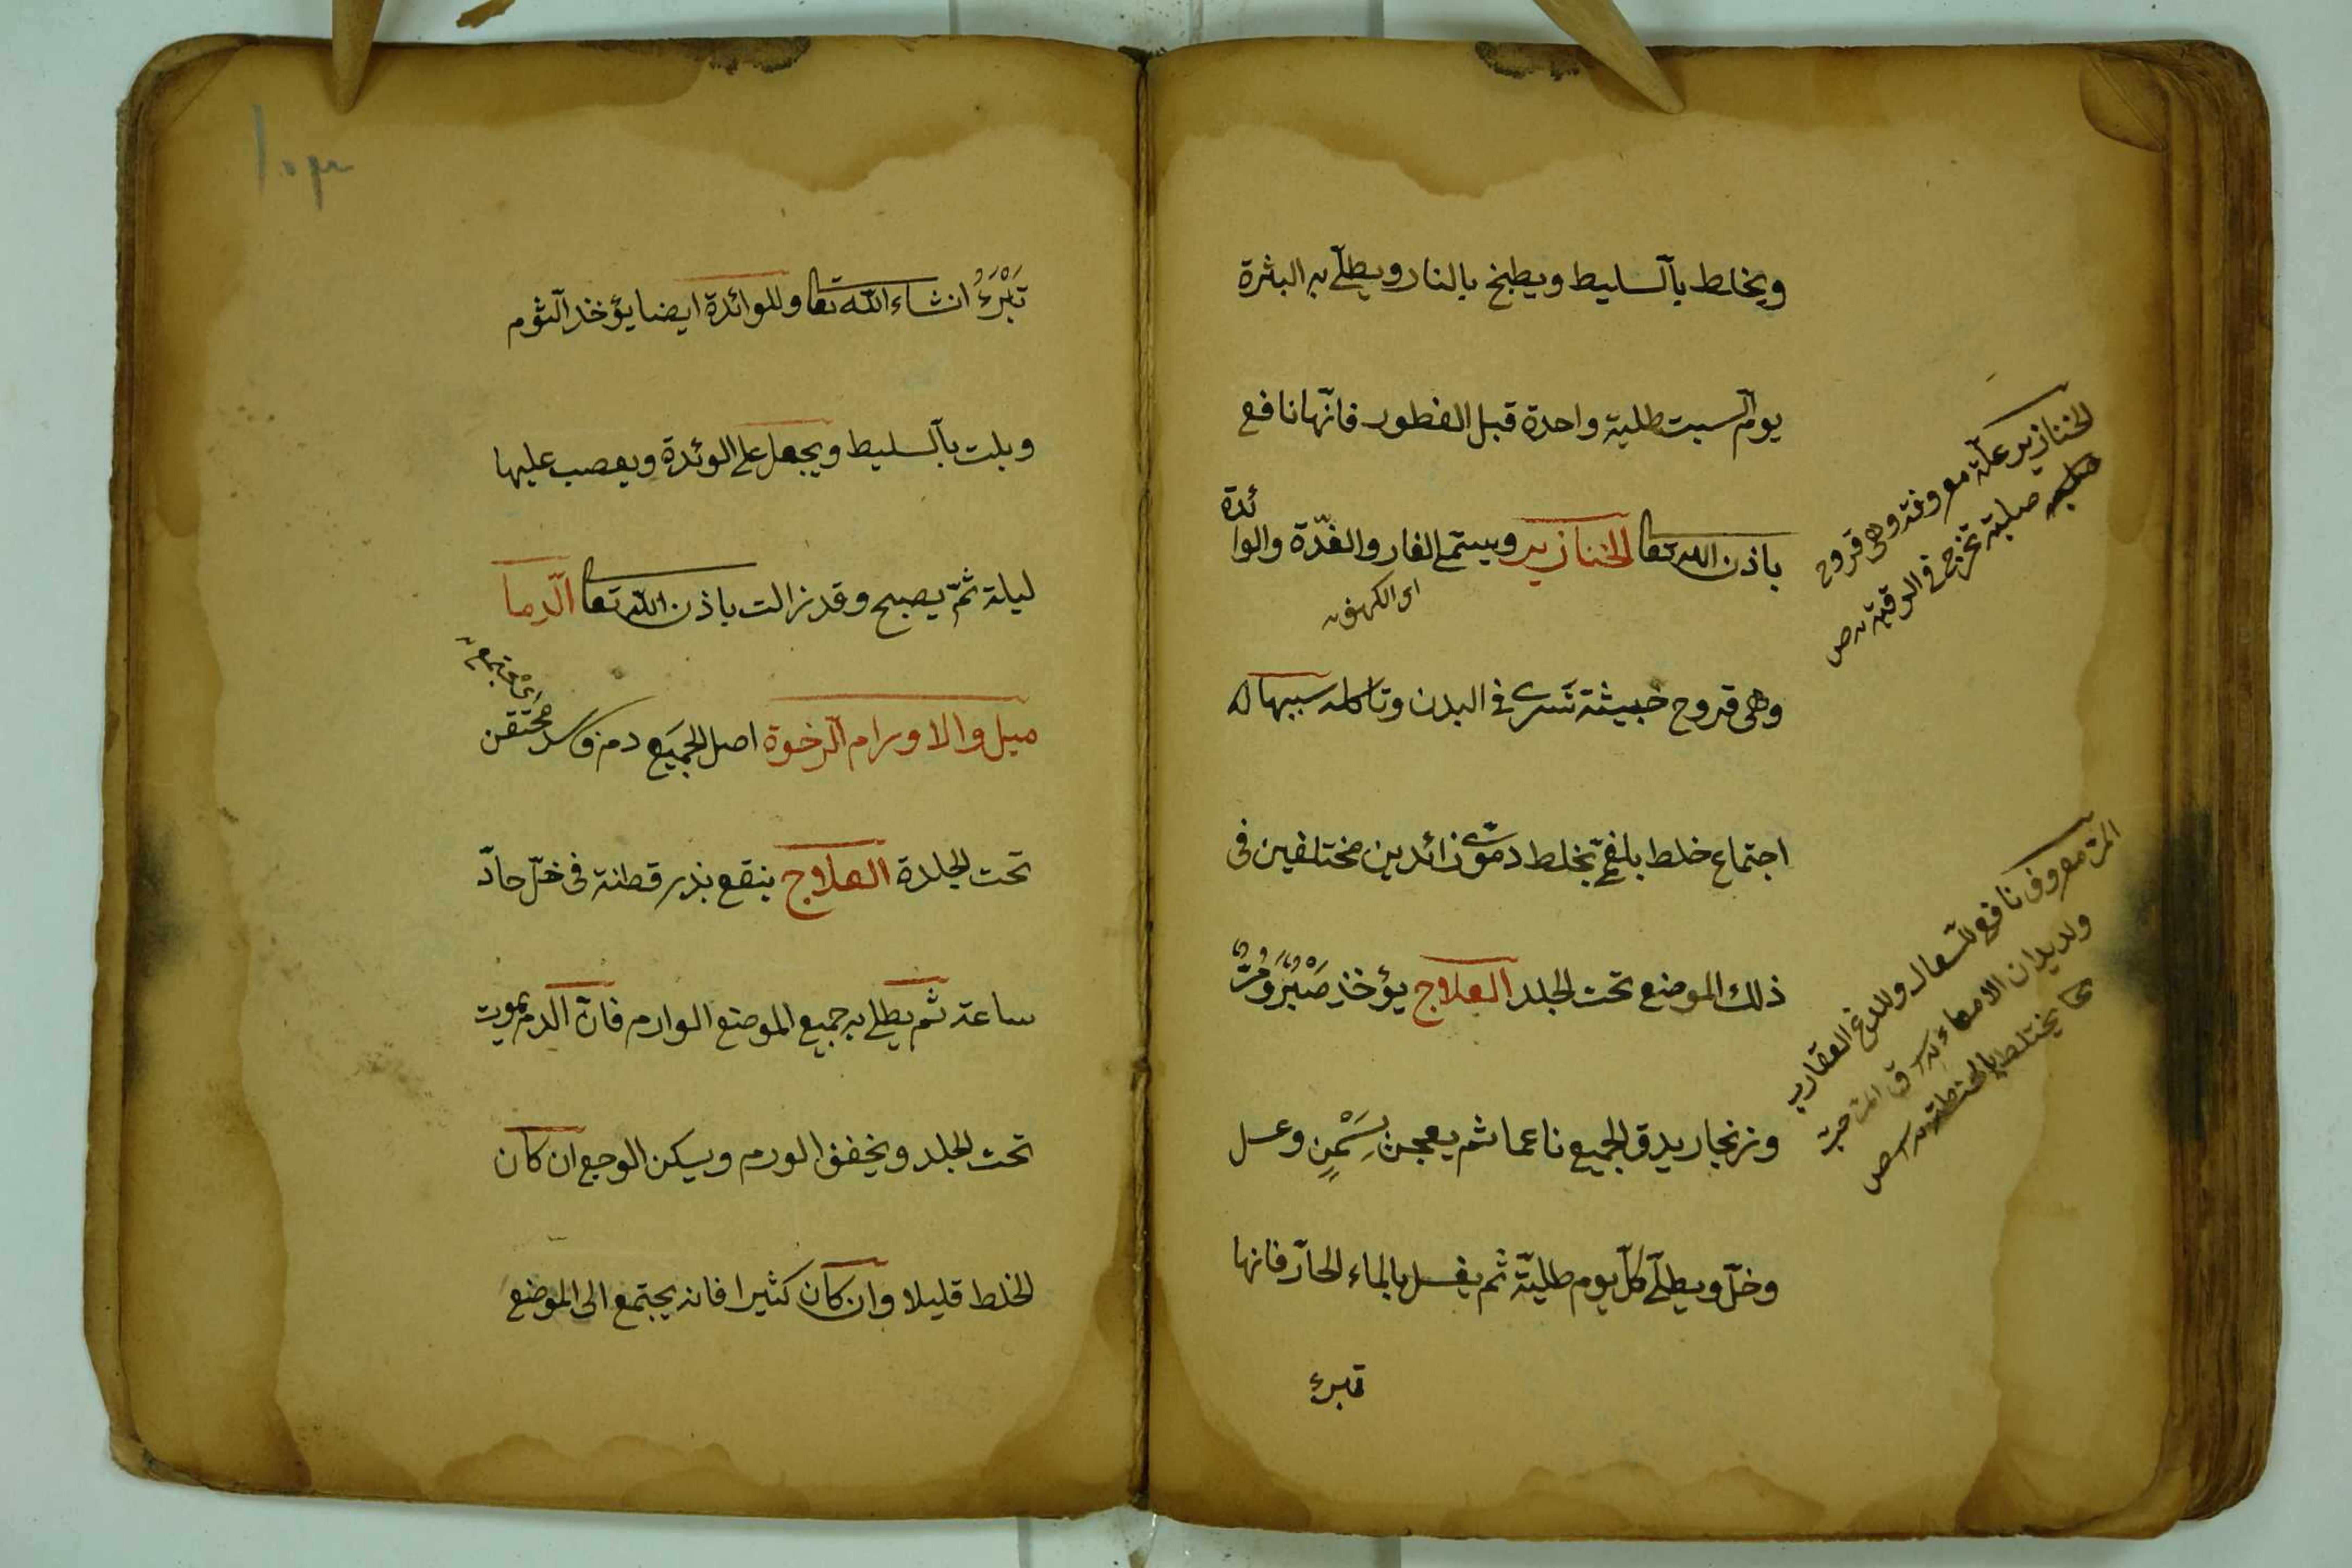 ويخلط بالسليط ويطبخ بالنار ويطلّى به البثرة
يوم السبت طلية واحدة قبل الفطور فانّها نافع
باذن الله تعا الخنازير ويسمّى الفار والغدّة والوا
ئدة
اى الكهف
وهى قروح خبيثة تسرى فى البدن وتاكله سببها
اجتماع خلط بلغمىّ بخلط دموىّ زائدين مختلفين فى
ذلك الموضع تحت الجلد العلاج يؤخذ صَبْرٌ وَمُرٌّ
وزنجار يدق الجميع ناعما ثم يعجن بِسَمْنٍ وعسل
وخلّ ويطلّى كلّ يوم طليّة ثم يغسل بالماء الحارّ فانها
تبرئ
الخنازير علّة معروفة وهى قروح
صلبة تخرج فى الرقبة ص
المرّ معروف نافع للسّعال وللدغ العقارب
ولديدان الامعاء
يختلط بالحنطة ص
١٥٣
تَبْرَئُ انشاء الله تعا وللوائدة ايضا يؤخذ الثوم
ويلت بالسليط ويجعل على الوئدة ويعصب عليها
ليلة ثمّ يصبح وقد زالت باذن الله تعا الدّما
ميل والاورام الرخوة اصل الجميَع دم فاسد محتقن
اىْ مجتمع
تحت الجلدة العلاج ينقع بذر قطنة فى خلّ حادّ
ساعة ثم يطلى به جميع الموضع الوارم فانّ الدم يموت
تحت الجلد ويخفف الورم ويسكن الوجع ان كان
الخلط قليلا وان كان كثيرا فانه يجتمع الى الموضع